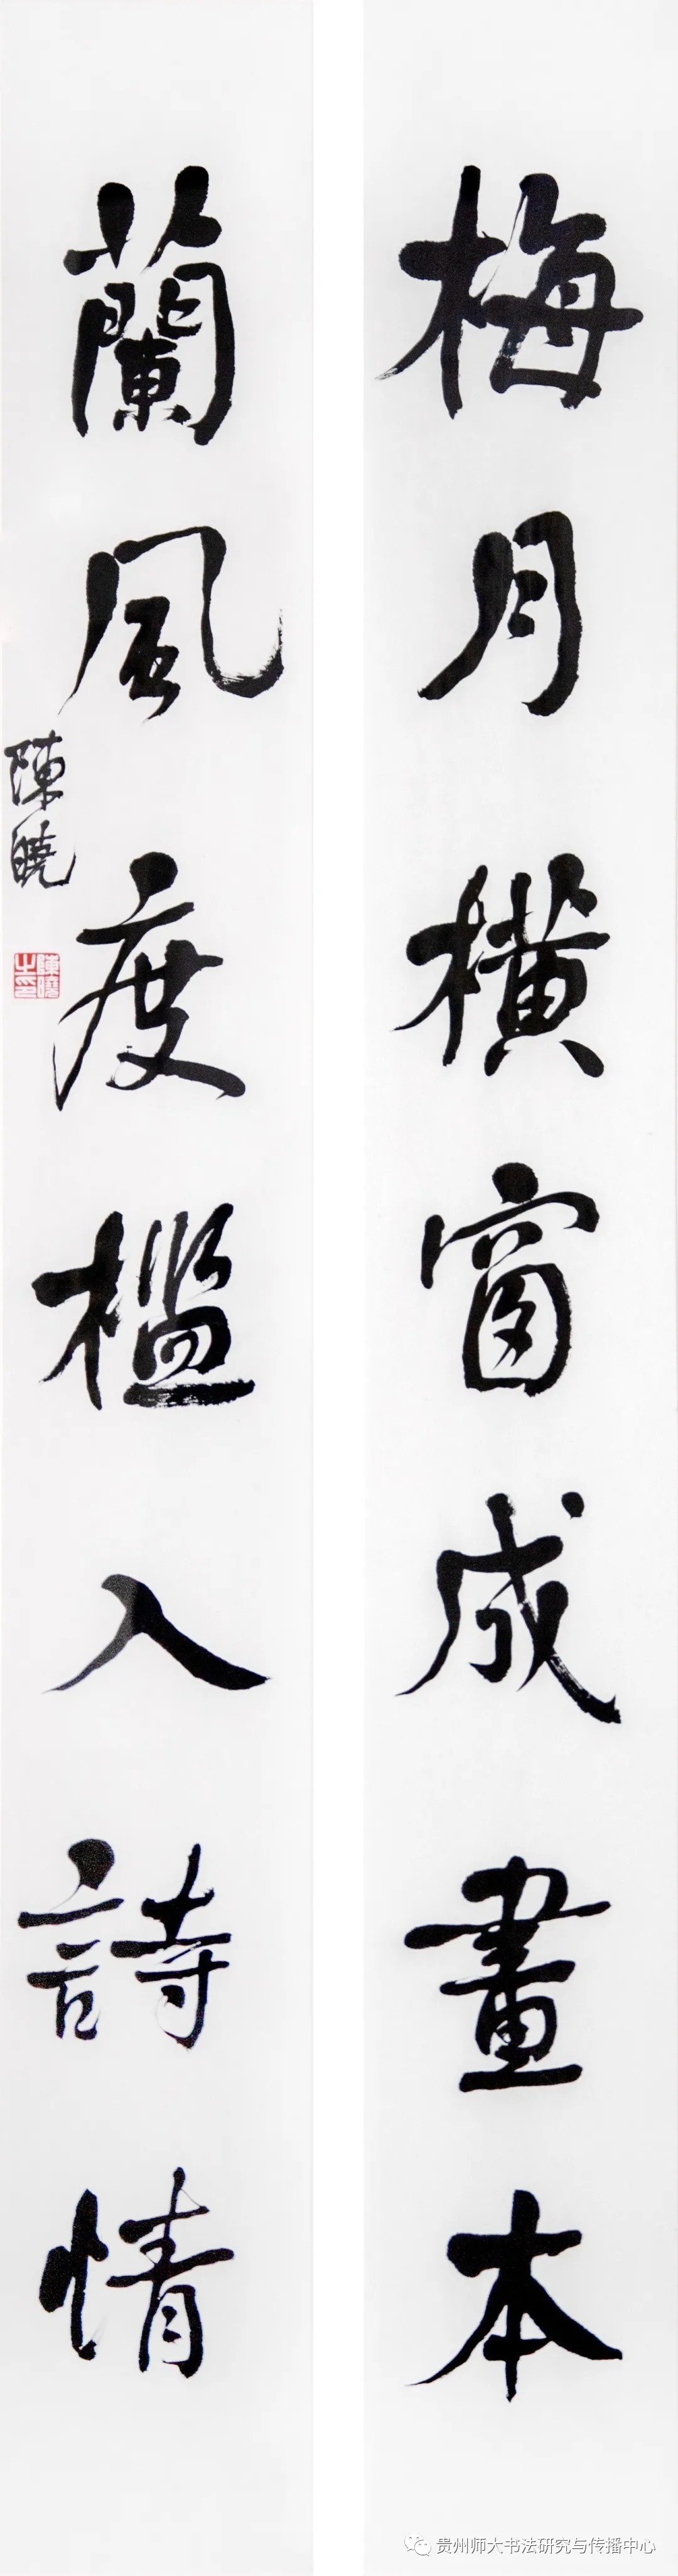 梅月橫窗成畫本
蘭風度檻入詩情
陳曉
陳曉之印
贵州师大书法研究与传播中心